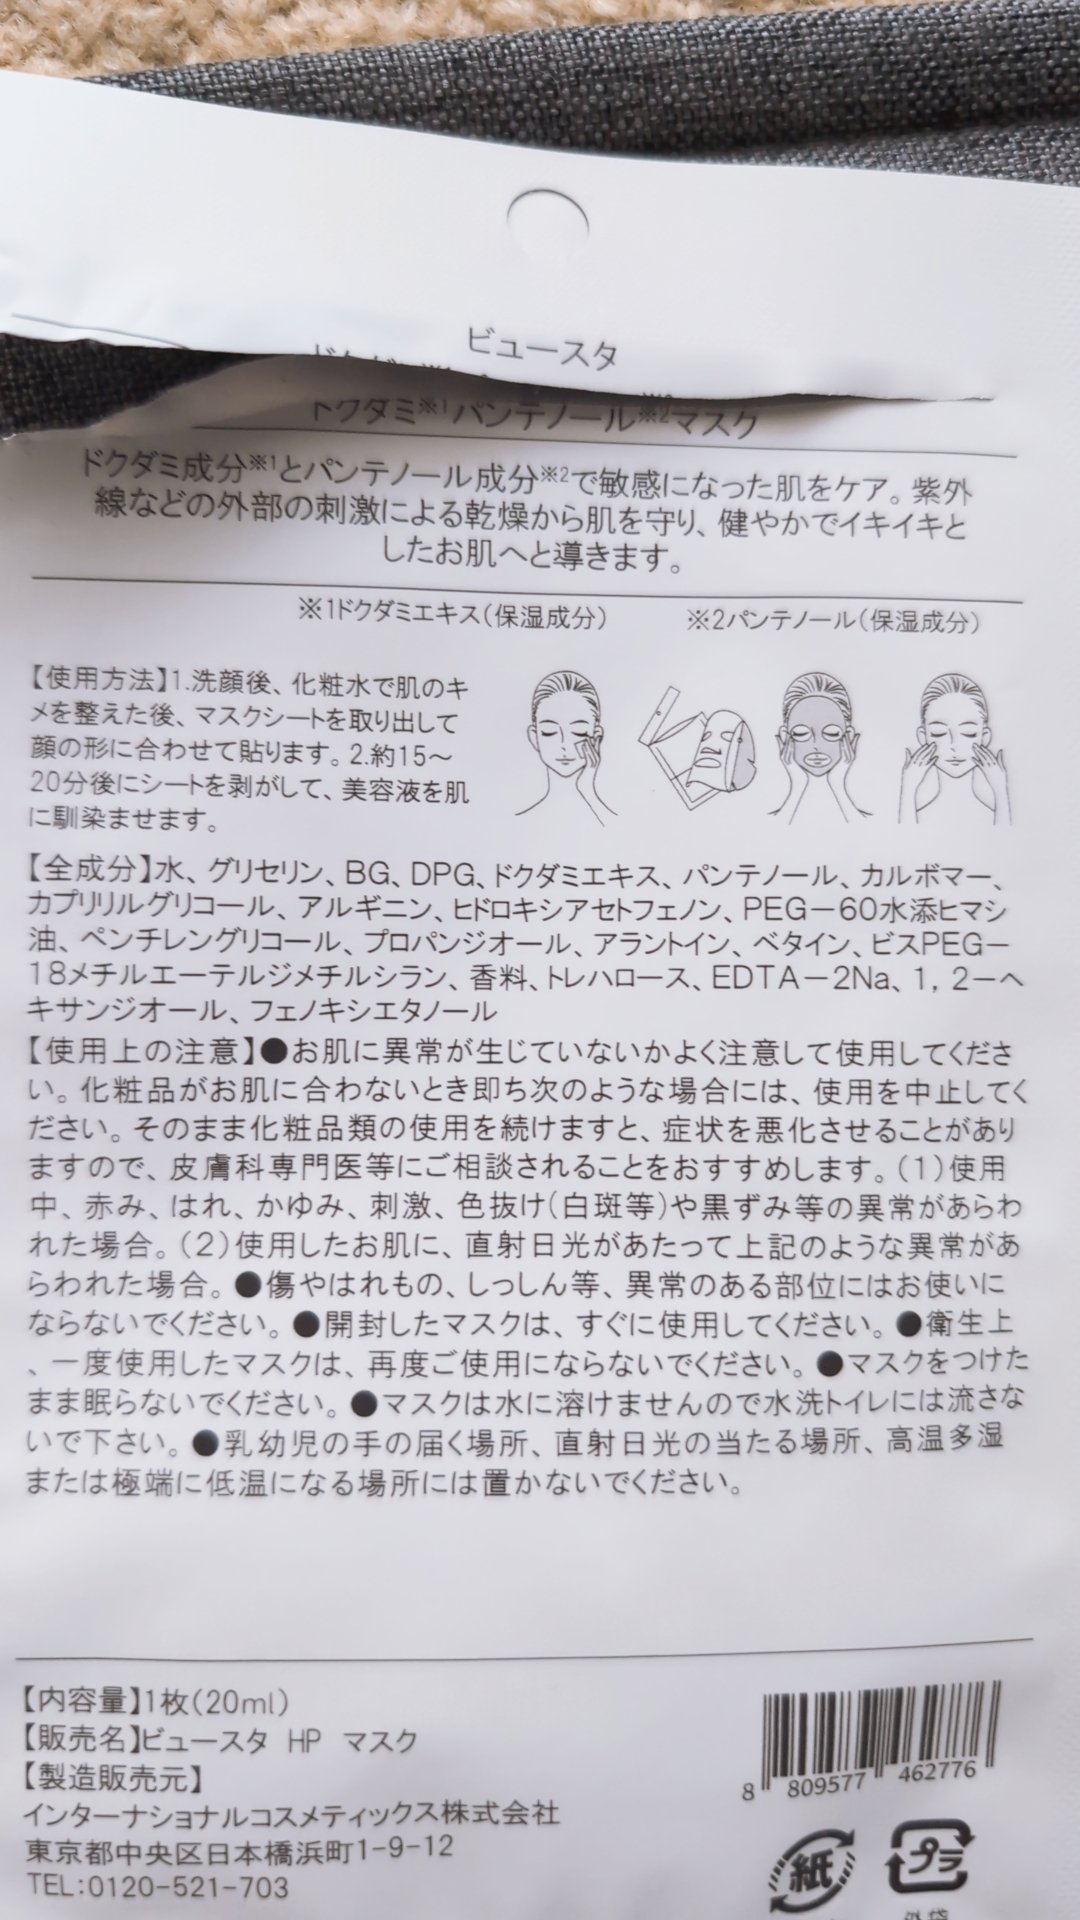 ビュースタ
ドクダミ※1パンテノール※2マスク
ドクダミ成分※1とパンテノール成分※2で敏感になった肌をケア。紫外
線などの外部の刺激による乾燥から肌を守り、健やかでイキイキと
したお肌へと導きます。
※1ドクダミエキス(保湿成分) ※2パンテノール(保湿成分)
【使用方法】1.洗顔後、化粧水で肌のキ
メを整えた後、マスクシートを取り出して
顔の形に合わせて貼ります。2.約15～
20分後にシートを剥がして、美容液を肌
に馴染ませます。
【全成分】水、グリセリン、BG、DPG、ドクダミエキス、パンテノール、カルボマー、
カプリリルグリコール、アルギニン、ヒドロキシアセトフェノン、PEG－60水添ヒマシ
油、ペンチレングリコール、プロパンジオール、アラントイン、ベタイン、ビスPEG－
18メチルエーテルジメチルシラン、香料、トレハロース、EDTA－2Na、1，2－ヘ
キサンジオール、フェノキシエタノール
【使用上の注意】●お肌に異常が生じていないかよく注意して使用してくださ
い。化粧品がお肌に合わないとき即ち次のような場合には、使用を中止してく
ださい。そのまま化粧品類の使用を続けますと、症状を悪化させることがあり
ますので、皮膚科専門医等にご相談されることをおすすめします。(1)使用
中、赤み、はれ、かゆみ、刺激、色抜け(白斑等)や黒ずみ等の異常があらわ
れた場合。(2)使用したお肌に、直射日光があたって上記のような異常があ
らわれた場合。●傷やはれもの、しっしん等、異常のある部位にはお使いに
ならないでください。●開封したマスクは、すぐに使用してください。●衛生上
、一度使用したマスクは、再度ご使用にならないでください。●マスクをつけた
まま眠らないでください。●マスクは水に溶けませんので水洗トイレには流さな
いで下さい。●乳幼児の手の届く場所、直射日光の当たる場所、高温多湿
または極端に低温になる場所には置かないでください。
【内容量】1枚(20ml)
【販売名】ビュースタ HP マスク
【製造販売元】
インターナショナルコスメティックス株式会社
東京都中央区日本橋浜町1-9-12
TEL:0120-521-703
8 809577 462776
紙 プラ
外袋